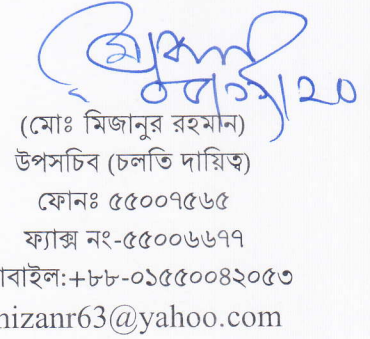 (মোঃ মিজানুর রহমান)
উপসচিব (চলতি দায়িত্ব)
ফোনঃ ৫৫০০৭৫৬৫
ফ্যাক্স নং-৫৫০০৬৬৭৭
াবাইল:+৮৮-০১৫৫০০৪২০৫৩
nizanr63@yahoo.com